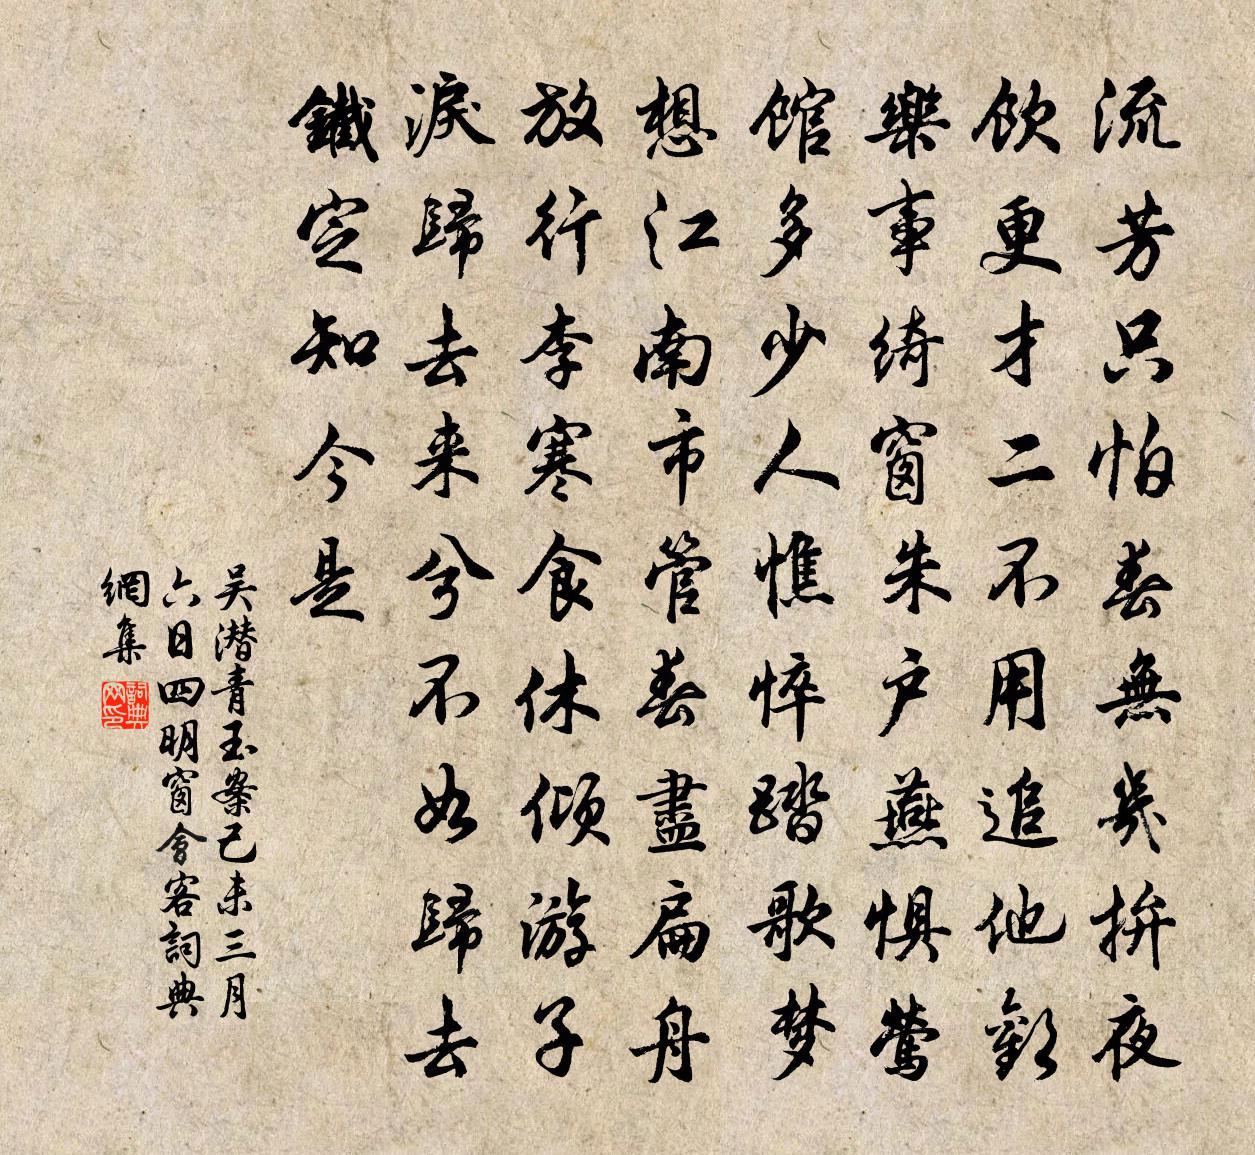 流芳只怕春無幾拚夜
飲更才二不用追他歡
樂事綺窗朱户燕惧鶯
馆多少人憔悴踏歌梦
想江南市管春盡扁舟
放行李寒食休倾游子
淚歸去来兮不如歸去
鐵定知今是
吴潜青玉案己未三月
六日四明窗會客詞典
網集
詞典
网印